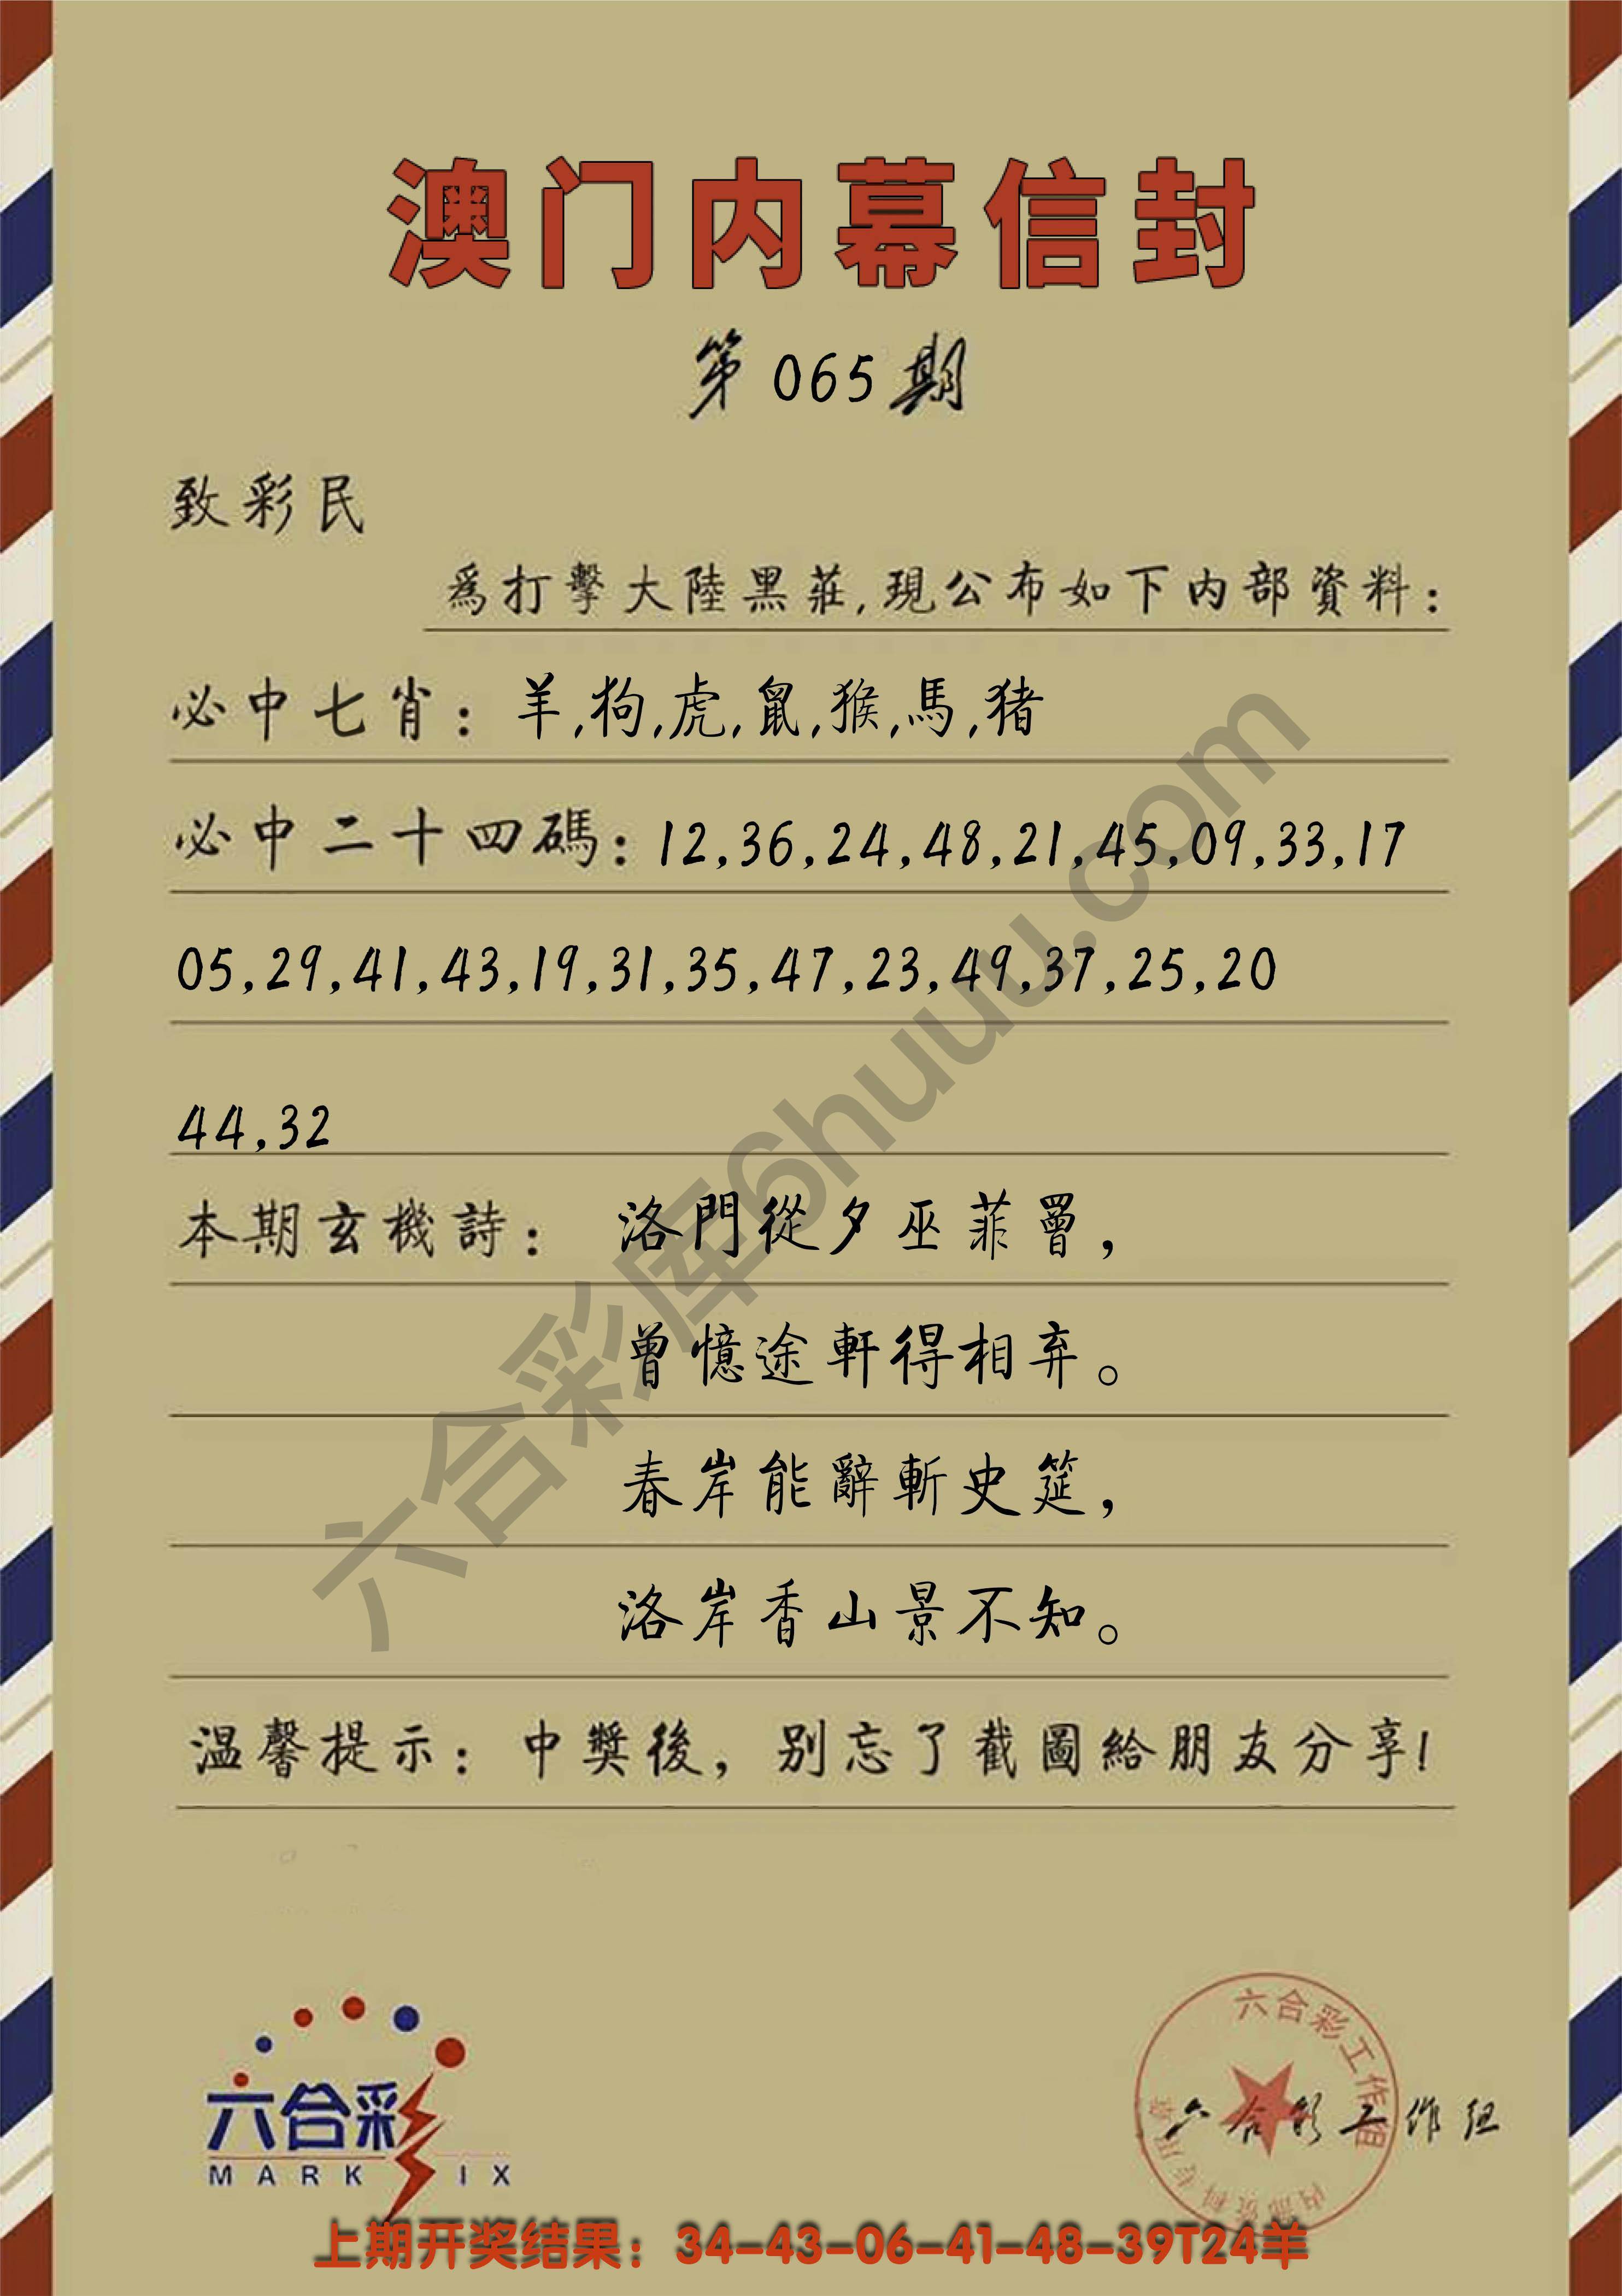 澳门内幕信封
第065期
致彩民
爲打擊大陸黑莊,現公布如下内部資料:
必中七肖: 羊,狗,虎,鼠,猴,馬,猪
必中二十四碼: 12,36,24,48,21,45,09,33,17
05,29,41,43,19,31,35,47,23,49,37,25,20
44,32
本期玄機詩: 洛門從夕巫菲罾,
曾憶途軒得相弃。
春岸能辭斬史筵,
洛岸香山景不知。
温馨提示: 中獎後, 别忘了截圖給朋友分享!
六合彩库6huuu.com
六合彩
MARK SIX
六合彩工作组
内部资料专用章
六合彩工作组
上期开奖结果: 34-43-06-41-48-39T24羊